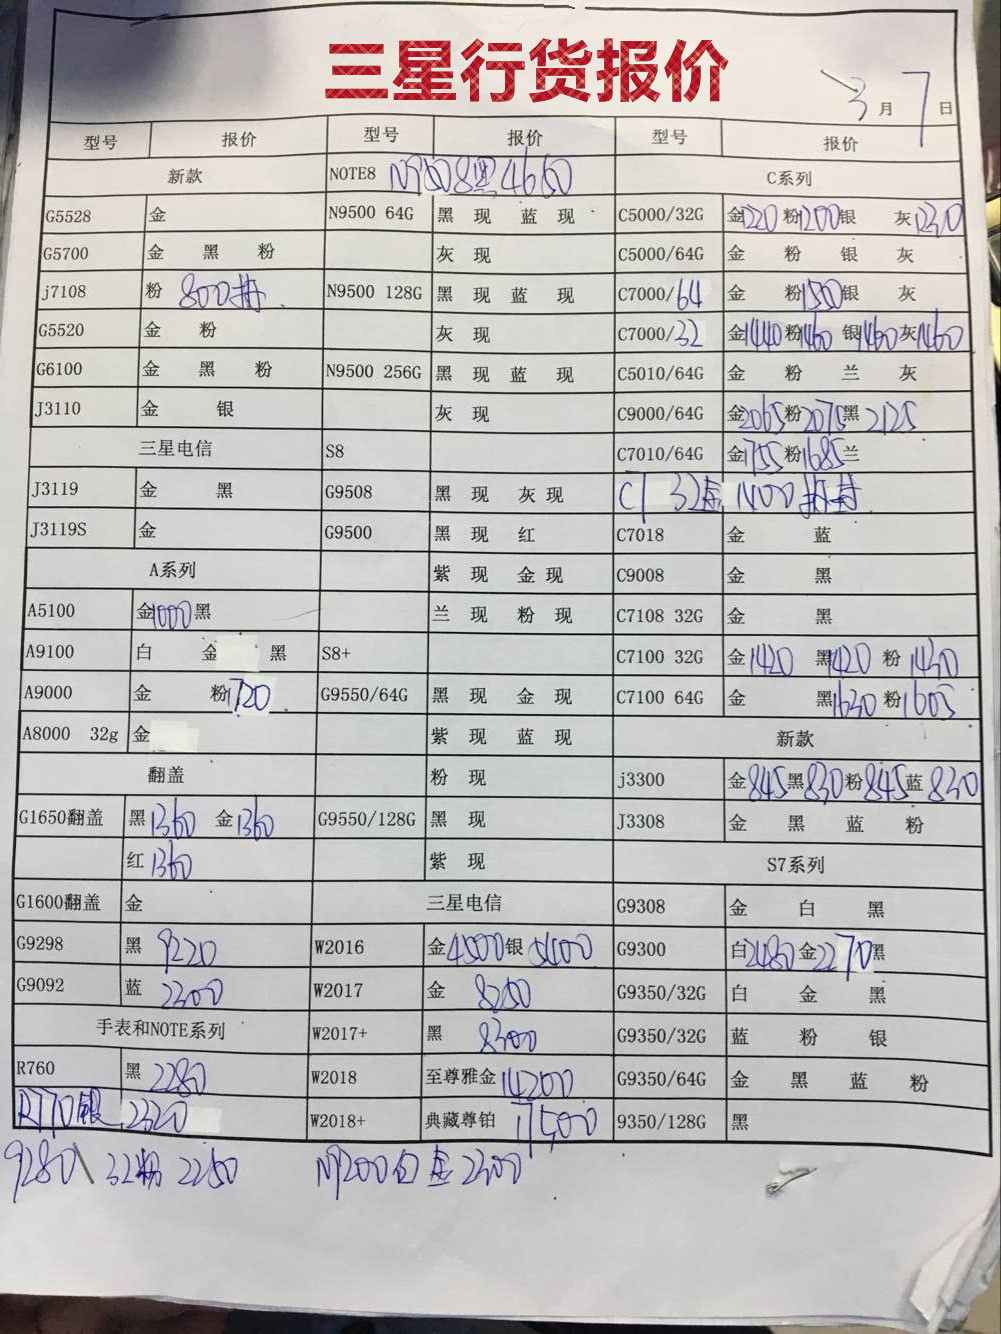 三星行货报价
3月7日
型号 报价 型号 报价 型号 报价
新款 NOTE8 N9508黑4660 C系列
G5528 金 N9500 64G 黑 现 蓝 现 C5000/32G 金1220粉1200银 灰1230
G5700 金 黑 粉 灰 现 C5000/64G 金 粉 银 灰
j7108 粉 800拆 N9500 128G 黑 现 蓝 现 C7000/64 金 粉1500银 灰
G5520 金 粉 灰 现 C7000/32 金1440粉1460银1460灰1460
G6100 金 黑 粉 N9500 256G 黑 现 蓝 现 C5010/64G 金 粉 兰 灰
J3110 金 银 灰 现 C9000/64G 金2065粉2075黑2125
三星电信 S8 C7010/64G 金1755粉1685兰
J3119 金 黑 G9508 黑 现 灰 现 C7 32金 1400拆封
J3119S 金 G9500 黑 现 红 C7018 金 蓝
A系列 紫 现 金 现 C9008 金 黑
A5100 金1000黑 兰 现 粉 现 C7108 32G 金 黑
A9100 白 金 黑 S8+ C7100 32G 金1420 黑1420 粉1430
A9000 金 粉1720 G9550/64G 黑 现 金 现 C7100 64G 金 黑1630粉1605
A8000 32g 金 紫 现 蓝 现 新款
翻盖 粉 现 j3300 金845黑830粉845蓝830
G1650翻盖 黑1360 金1360 G9550/128G 黑 现 J3308 金 黑 蓝 粉
红1360 紫 现 S7系列
G1600翻盖 金 三星电信 G9308 金 白 黑
G9298 黑 9220 W2016 金4500银5400 G9300 白2480金2270黑
G9092 蓝 2300 W2017 金 8250 G9350/32G 白 金 黑
手表和NOTE系列 W2017+ 黑 8300 G9350/32G 蓝 粉 银
R760 黑 2280 W2018 至尊雅金14200 G9350/64G 金 黑 蓝 粉
R770银 2320 W2018+ 典藏尊铂 17500 9350/128G 黑
9280\32粉2250 N9200白金2300